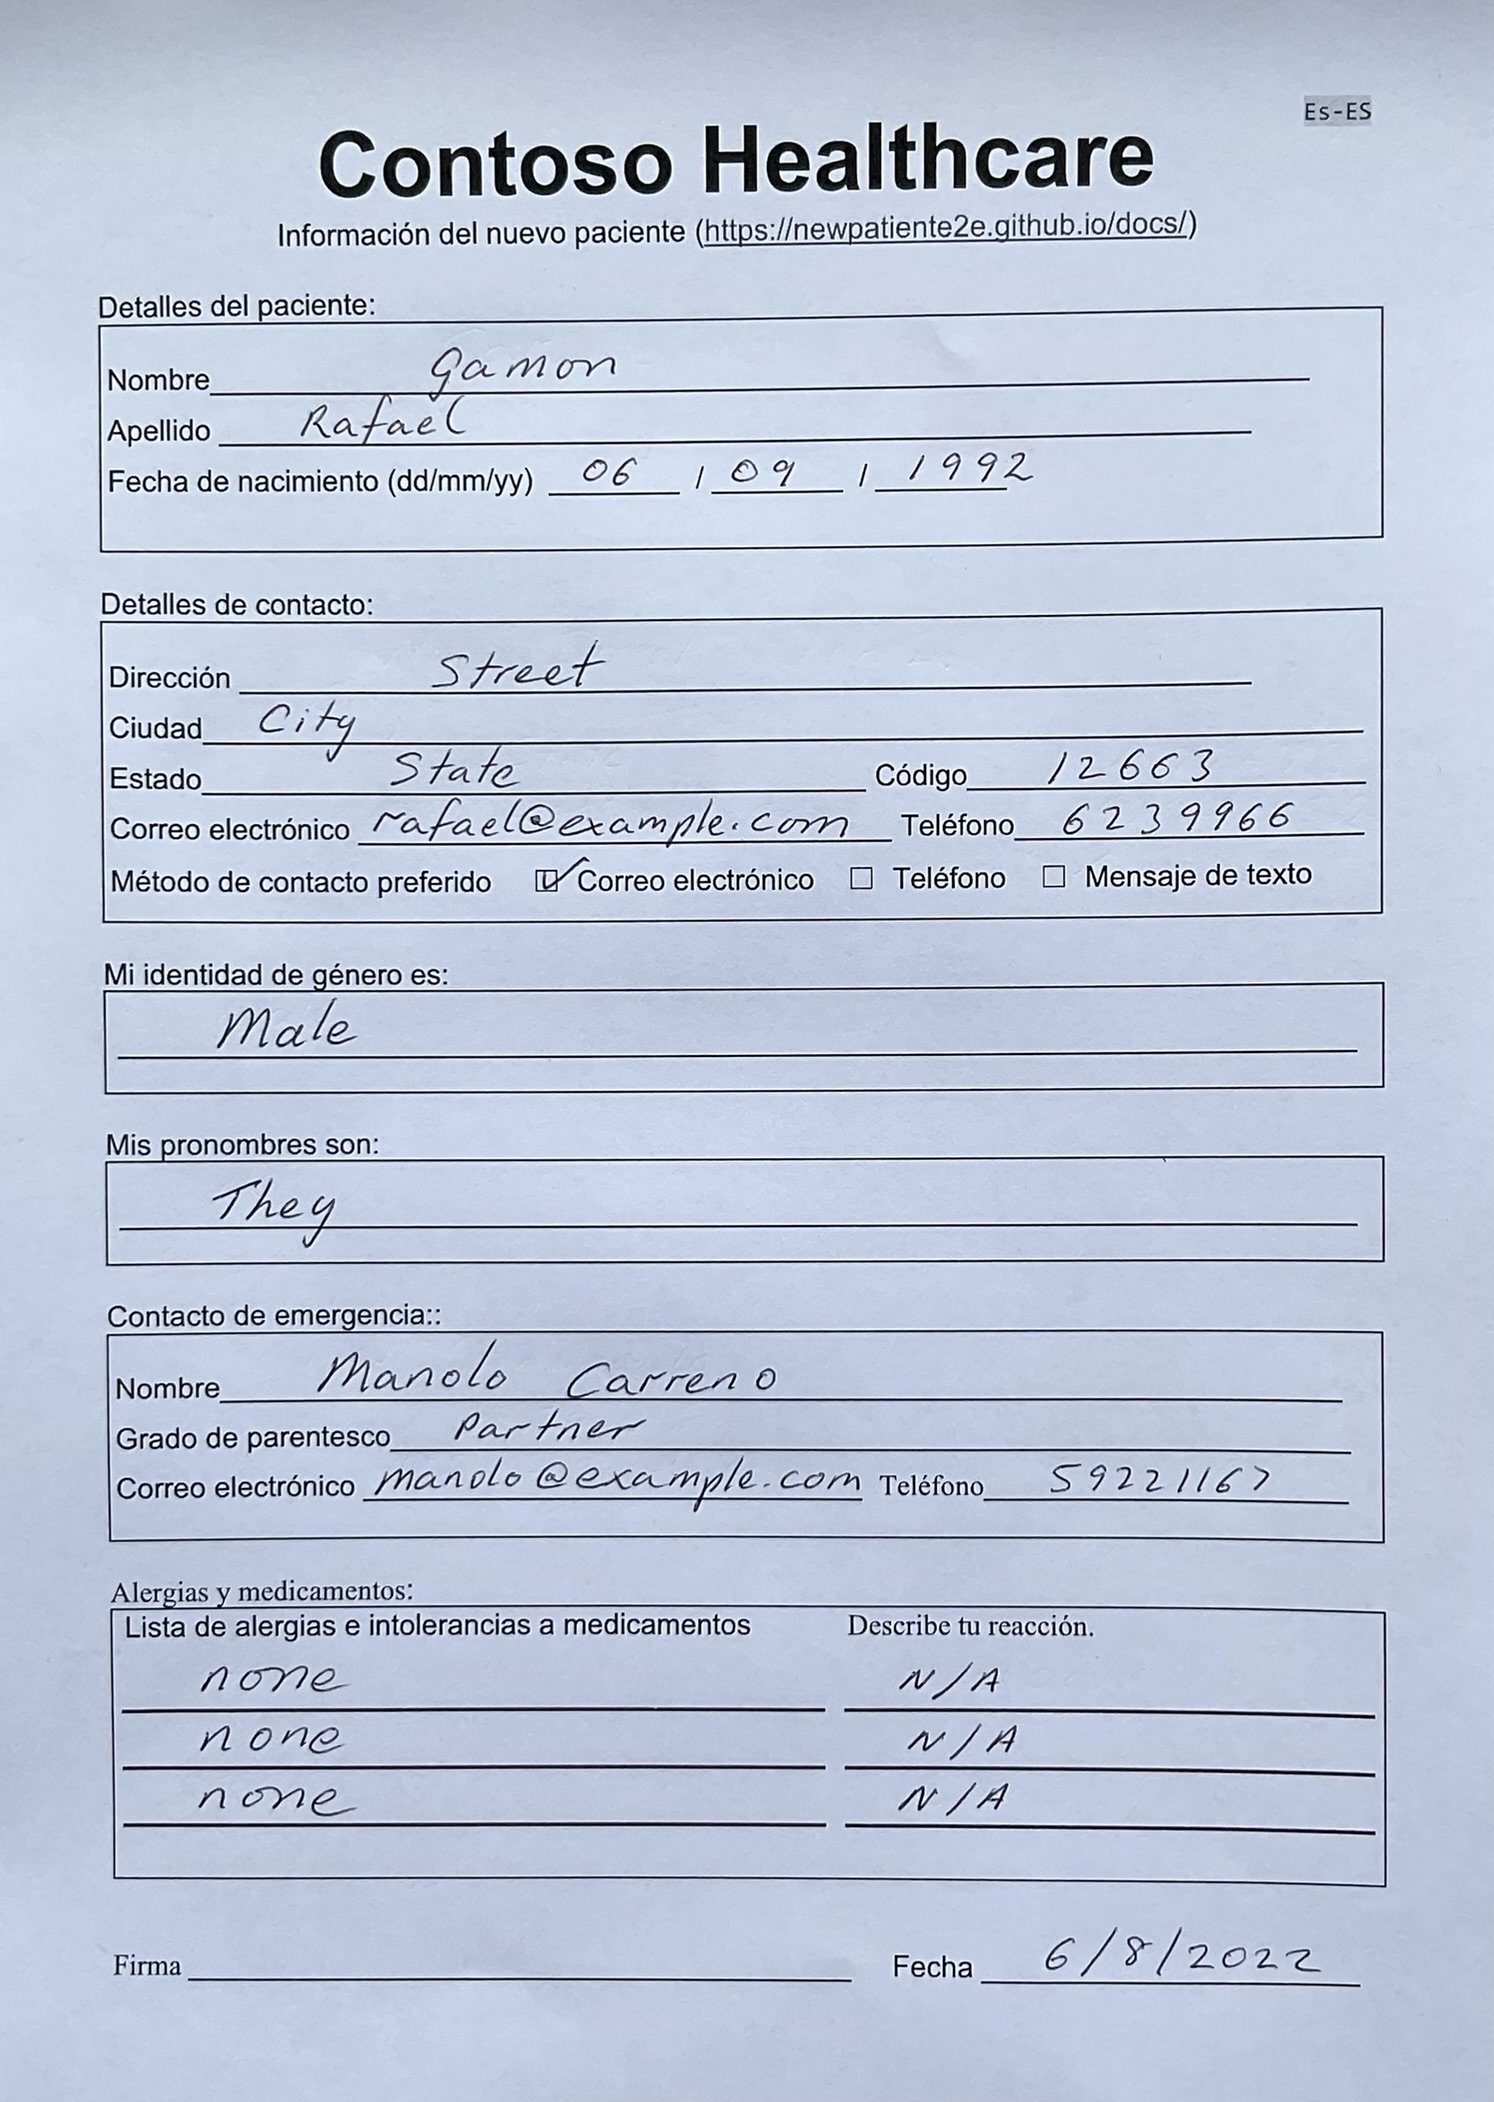 Es-ES
Contoso Healthcare
Información del nuevo paciente (https://newpatiente2e.github.io/docs/)
Detalles del paciente:
Nombre Gamon
Apellido Rafael
Fecha de nacimiento (dd/mm/yy) 06 / 09 / 1992
Detalles de contacto:
Dirección Street
Ciudad City
Estado State Código 12663
Correo electrónico rafael@example.com Teléfono 6239966
Método de contacto preferido ☑ Correo electrónico ☐ Teléfono ☐ Mensaje de texto
Mi identidad de género es:
Male
Mis pronombres son:
They
Contacto de emergencia::
Nombre Manolo Carreno
Grado de parentesco Partner
Correo electrónico manolo@example.com Teléfono 59221167
Alergias y medicamentos:
Lista de alergias e intolerancias a medicamentos Describe tu reacción.
none N/A
none N/A
none N/A
Firma Fecha 6/8/2022